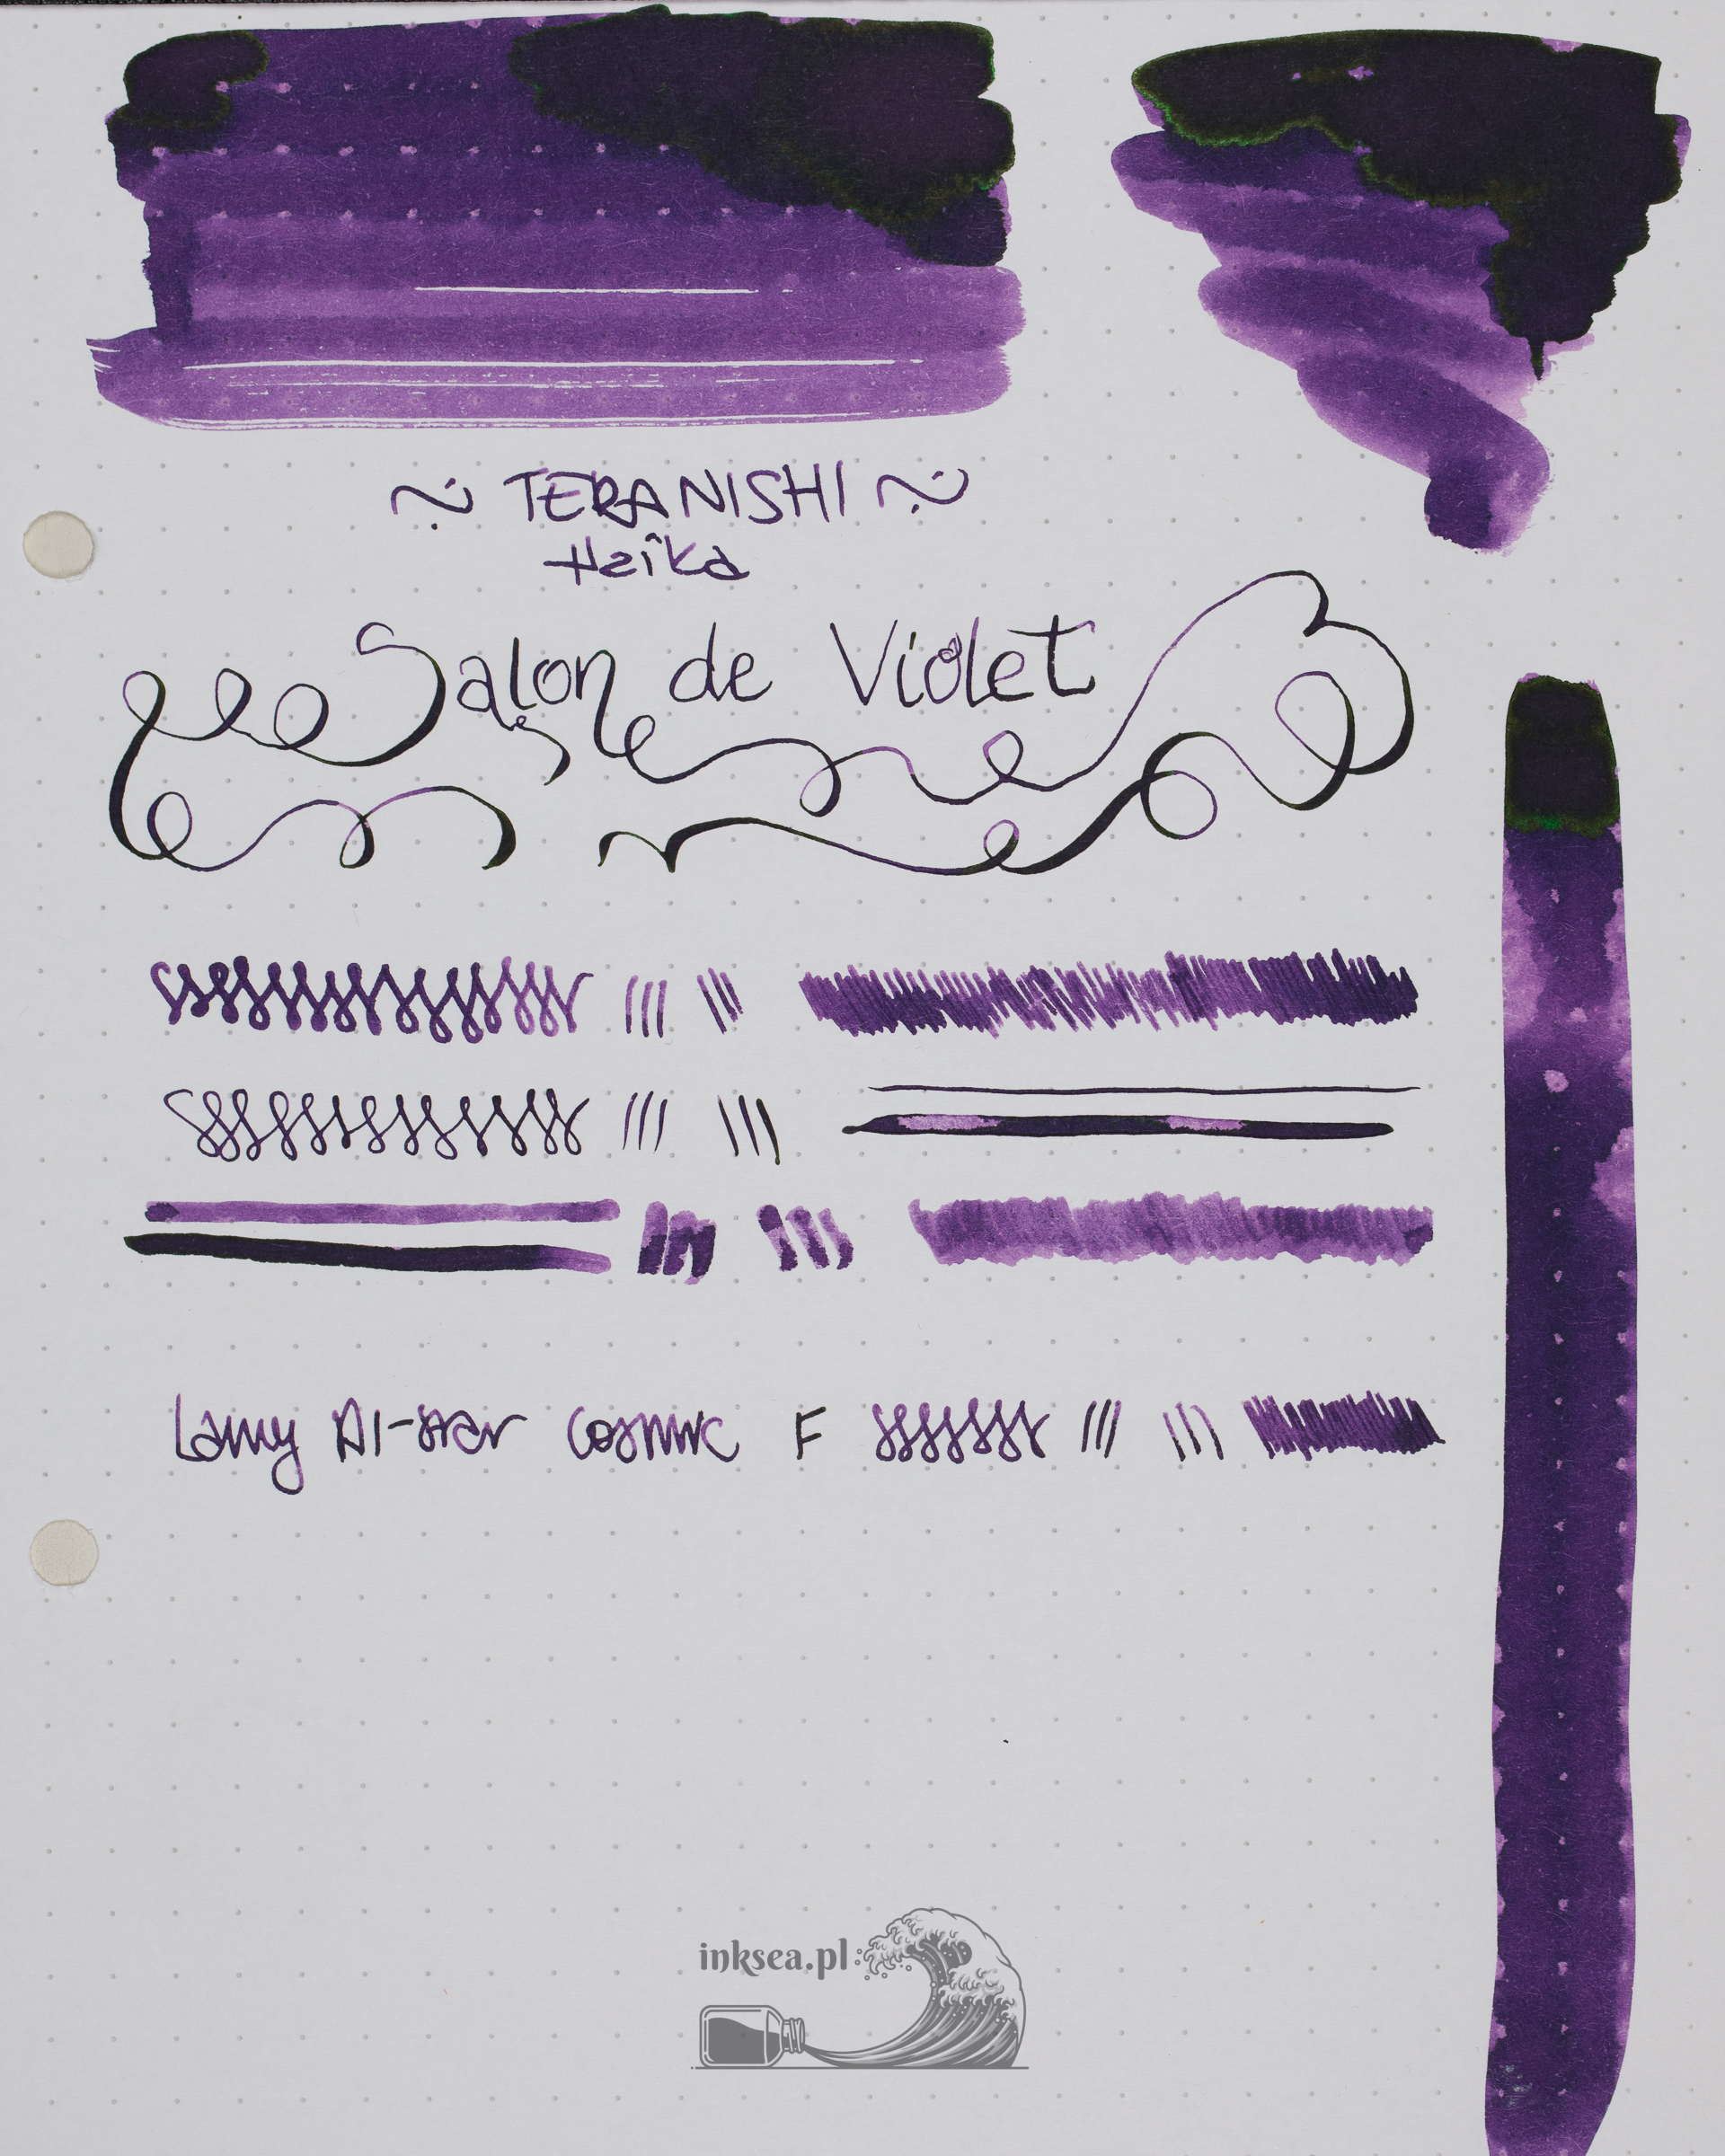 ~ TERANISHI ~
Haika
Salon de Violet
Lamy Al-star Cosmic F
inksea.pl